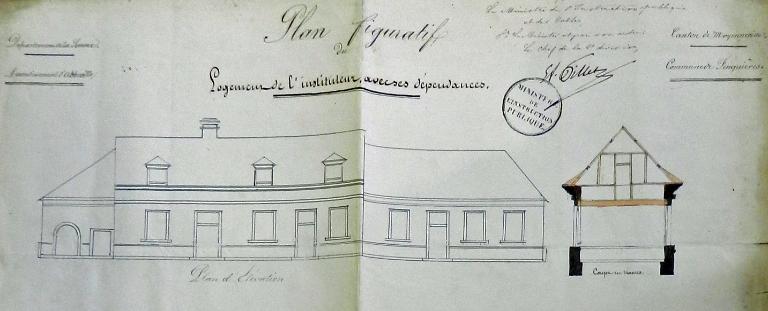 Plan figuratif
du
Logement de l'instituteur, avec ses dépendances.
Département de la Somme
Arrondissement d'Abbeville
Le Ministre de l'Instruction publique
et des Cultes
Le chef de la 2e division
Canton de Moyenneville
Commune de
MINISTÈRE
DE
L'INSTRUCTION
PUBLIQUE
Plan d'Élévation
Coupe en travers.